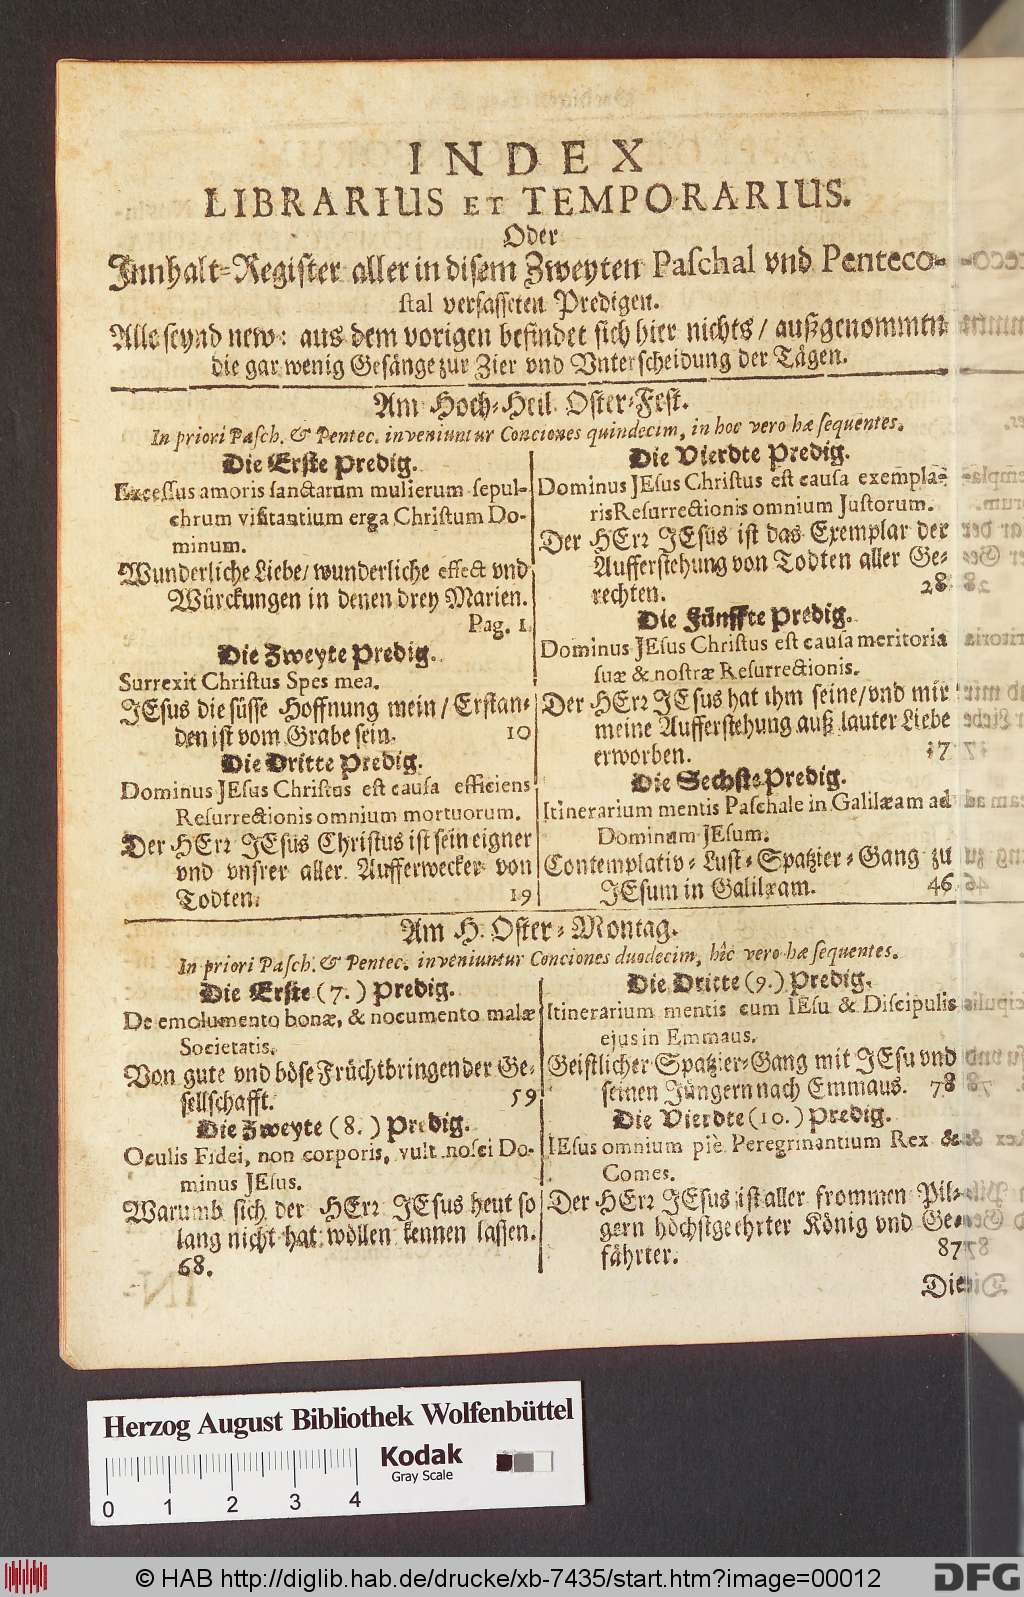 INDEX
LIBRARIUS ET TEMPORARIUS.
Oder
Innhalt-Register aller in disem Zweyten Paschal vnd Penteco-
stal verfasseten Predigen.
Alle seynd new: aus dem vorigen befindet sich hier nichts / außgenommen
die gar wenig Gesänge zur Zier vnd Vnterscheidung der Tägen.
Am Hoch-Heil. Oster-Fest.
In priori Pasch. & Pentec. inveniuntur Conciones quindecim, in hoc vero hæ sequentes.
Die Erste Predig.
Excessus amoris sanctarum mulierum sepul-
chrum visitantium erga Christum Do-
minum.
Wunderliche Liebe / wunderliche effect vnd
Würckungen in denen drey Marien.
Pag. 1.
Die Zweyte Predig.
Surrexit Christus Spes mea.
JEsus die süsse Hoffnung mein / Erstan-
den ist vom Grabe sein. 10
Die Dritte Predig.
Dominus JEsus Christus est causa efficiens
Resurrectionis omnium mortuorum.
Der HErr JEsus Christus ist sein eigner
vnd vnsrer aller Aufferwecker von
Todten. 19
Die Vierdte Predig.
Dominus JEsus Christus est causa exempla-
ris Resurrectionis omnium Justorum.
Der HErr JEsus ist das Exemplar der
Aufferstehung von Todten aller Ge-
rechten. 28
Die Fünffte Predig.
Dominus JEsus Christus est causa meritoria
suæ & nostræ Resurrectionis.
Der HErr JEsus hat ihm seine / vnd mir
meine Aufferstehung auß lauter Liebe
erworben. 37
Die Sechste Predig.
Itinerarium mentis Paschale in Galilæam ad
Dominum JEsum.
Contemplativ-Lust-Spatzier-Gang zu
JEsum in Galilæam. 46
Am H. Oster-Montag.
In priori Pasch. & Pentec. inveniuntur Conciones duodecim, hîc vero hæ sequentes.
Die Erste (7.) Predig.
De emolumento bonæ, & nocumento malæ
Societatis.
Von gute vnd böse Früchtbringender Ge-
sellschafft. 59
Die Zweyte (8.) Predig.
Oculis Fidei, non corporis, vult nosci Do-
minus JEsus.
Warumb sich der HErr JEsus heut so
lang nicht hat wöllen kennen lassen.
68.
Die Dritte (9.) Predig.
Itinerarium mentis cum IEsu & Discipulis
ejus in Emmaus.
Geistlicher Spatzier-Gang mit JEsu vnd
seinen Jüngern nach Emmaus. 78
Die Vierdte (10.) Predig.
IEsus omnium piè Peregrinantium Rex &
Comes.
Der HErr JEsus ist aller frommen Pil-
gern höchstgeehrter König vnd Ge-
fährter. 87
Die
Herzog August Bibliothek Wolfenbüttel
Kodak
Gray Scale
0 1 2 3 4
© HAB http://diglib.hab.de/drucke/xb-7435/start.htm?image=00012
DFG